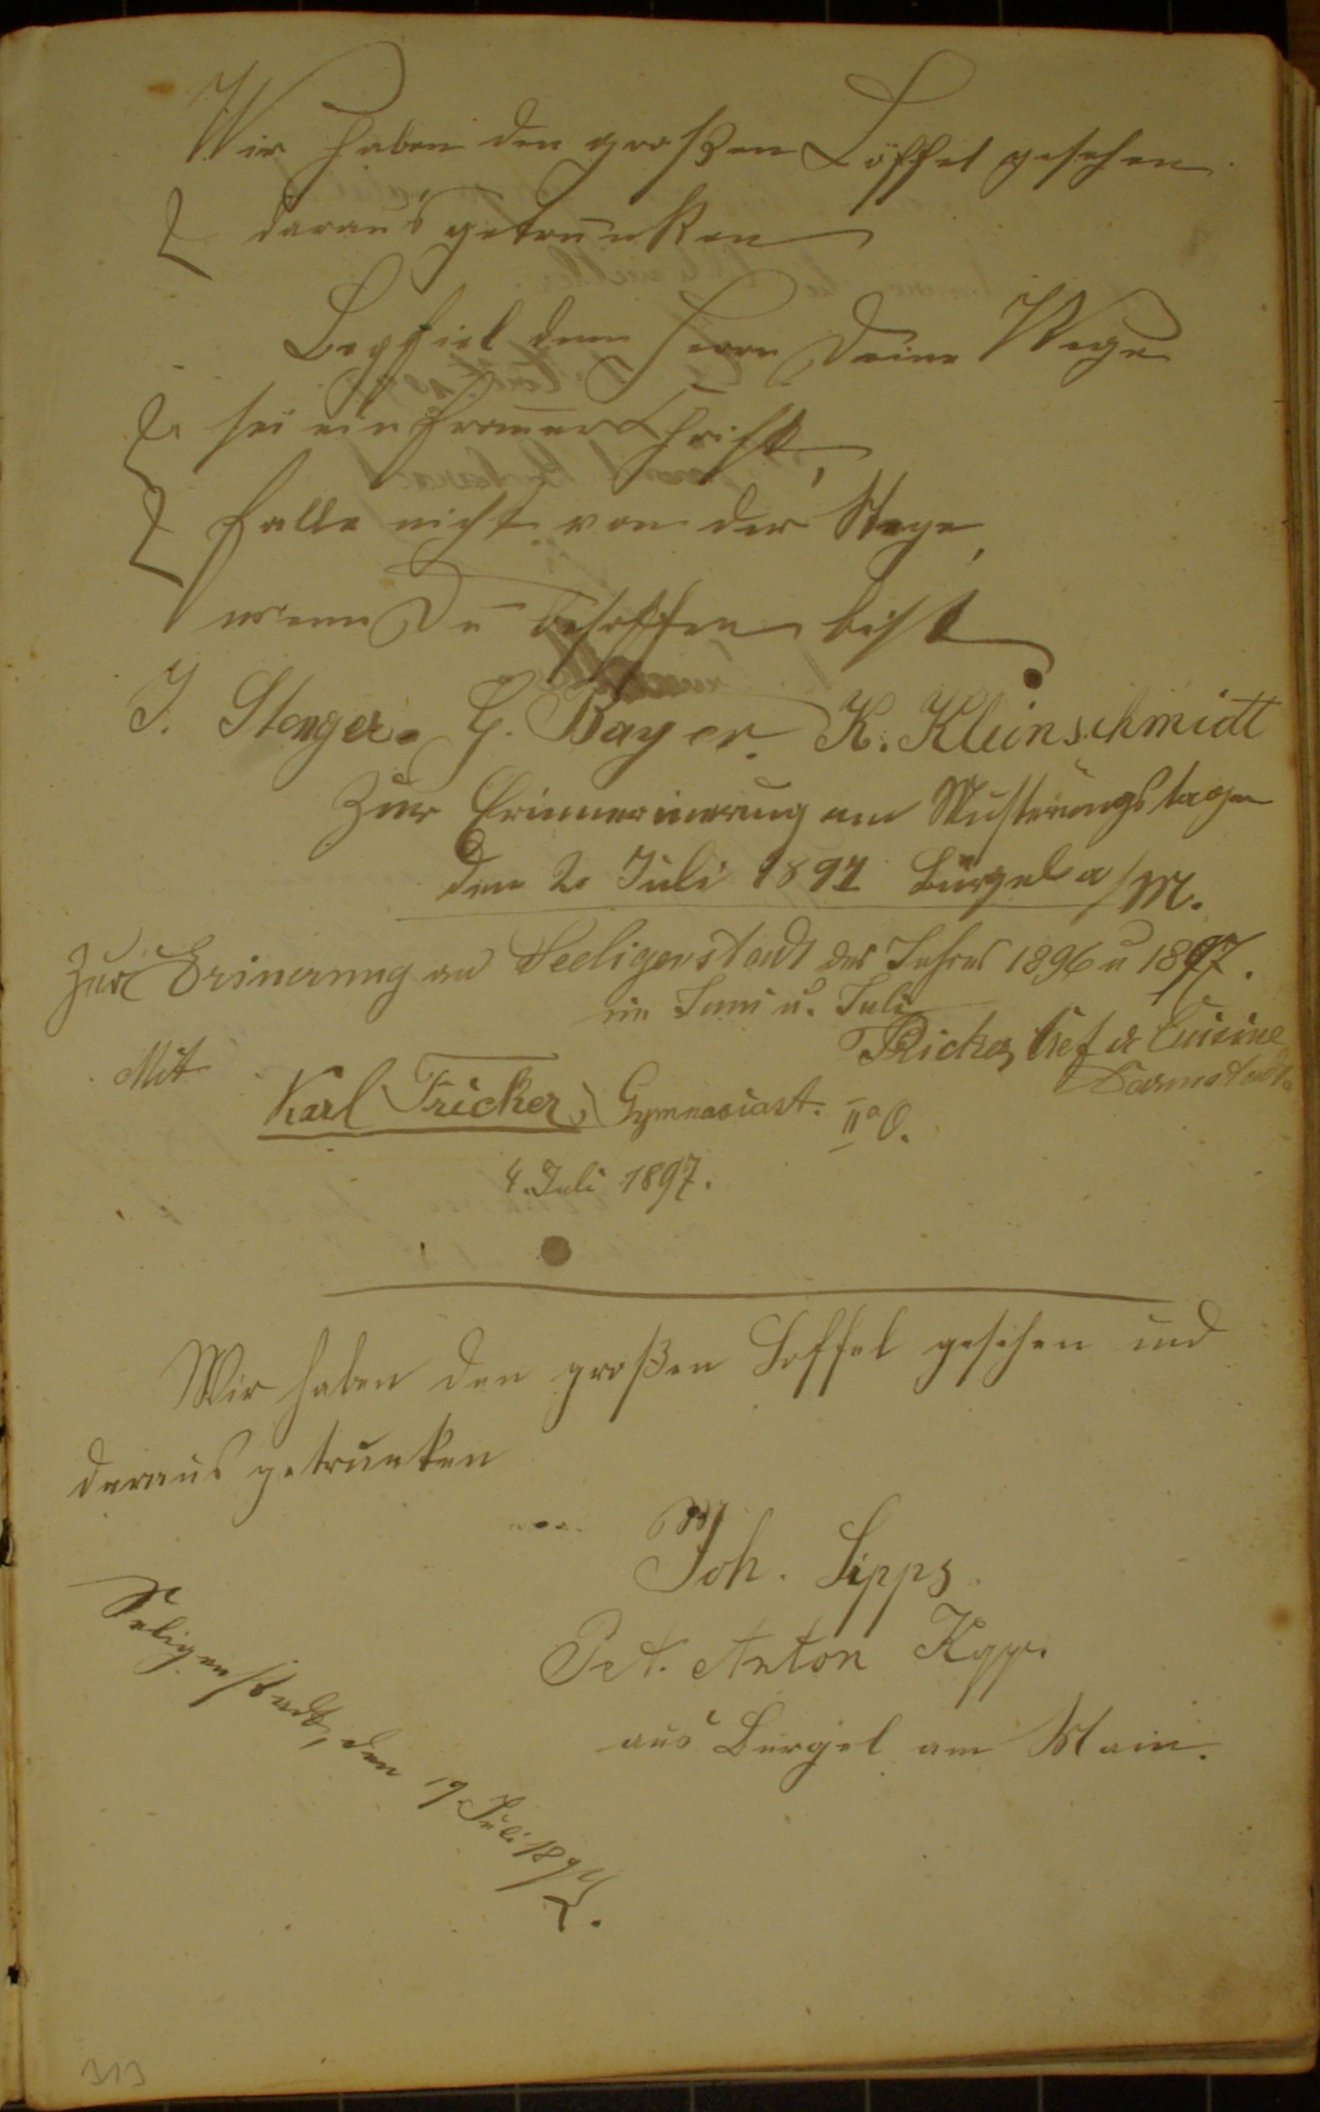 Wir haben den großen Löffel gesehen
& daraus getrunken
Bepfiel dem Herrn Deine Wege
& sei ein from̄er Christ,
& falle nicht von der Stege,
wenn Du besoffen bist
J. Stenger. G. Bayer. K. Kleinschmidt
Zur Erinnerinerung am Musterungstage
den 2. Juli 1897 Bürgel a/M.
Zur Erinerung an Seeligenstadt des Jahres 1896 u 1897.
im Juni u. Juli
Fricker, Chef de Cuisine
Darmstadt.
Mit
Karl Fricker, Gymnasiast. IIa O.
4. Juli 1897.
Wir haben den großen Loffel gesehen und
daraus getrunken
Joh. Lipps
Pet. Anton
aus Bürgel am Main.
Seligenstadt, den 19. Juli 1897.
313